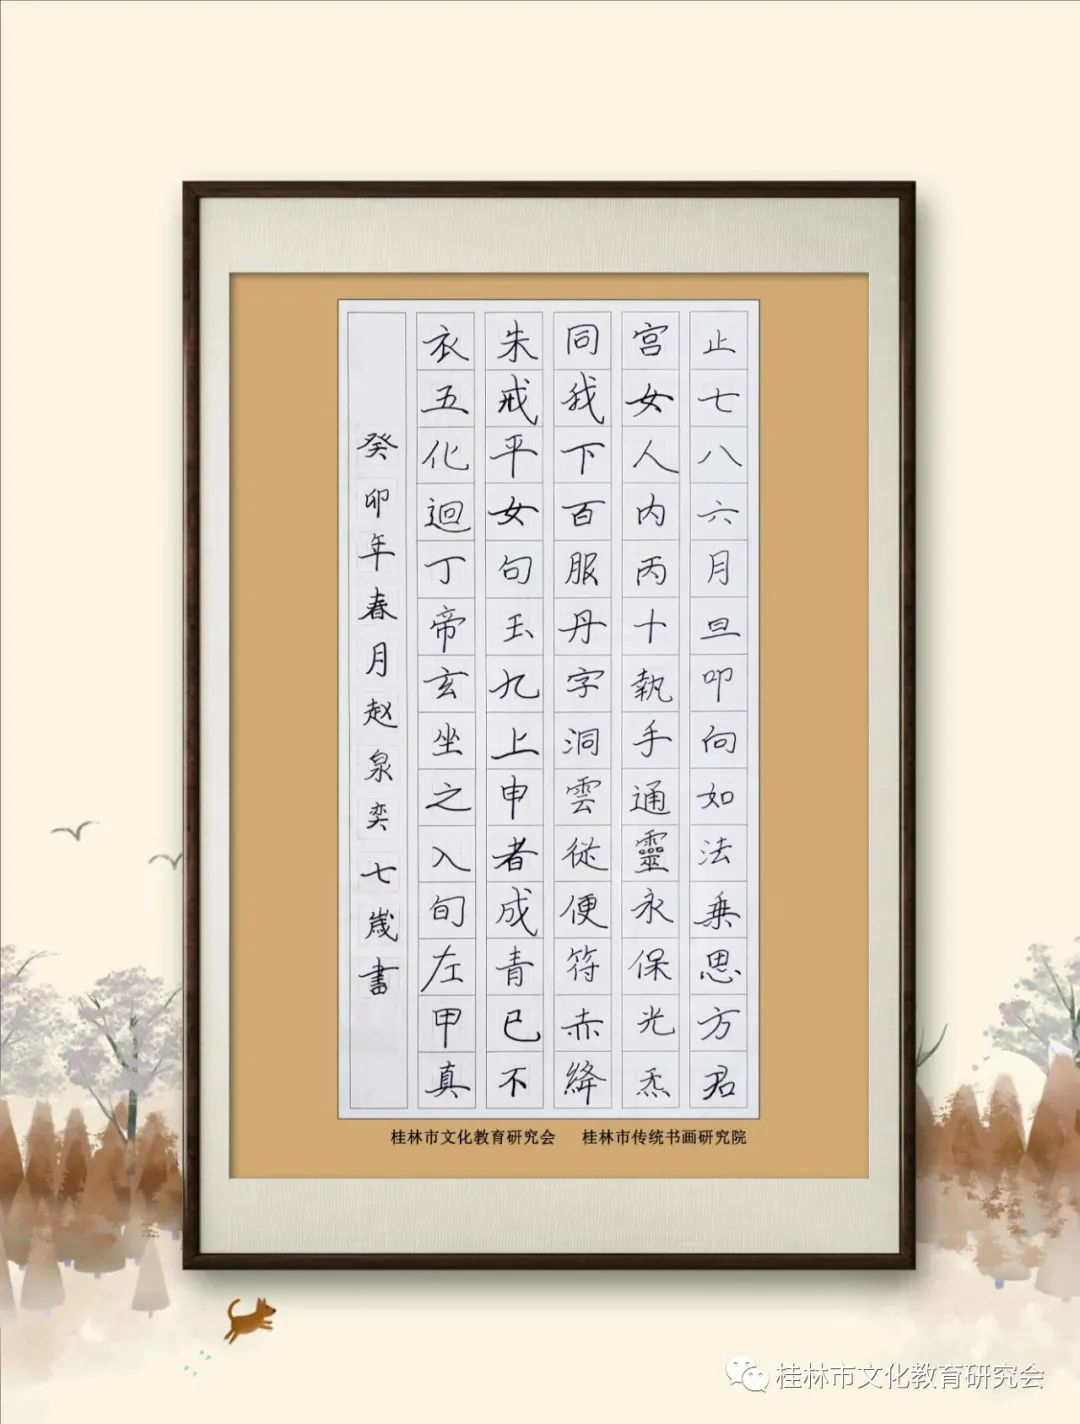 止七八六月旦叩向如法乘思方君
宫女人内丙十執手通靈永保光炁
同我下百服丹字洞雲從便符赤絳
朱戒平女句玉九上申者成青已不
衣五化迴丁帝玄坐之入旬左甲真
癸卯年春月赵泉奕七歲書
桂林市文化教育研究会 桂林市传统书画研究院
桂林市文化教育研究会